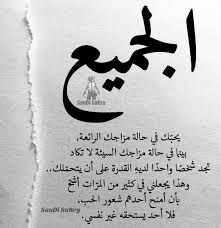 SanDi SaBry
الجميع
يحبّك في حالة مزاجك الرائعة،
بينما في حالة مزاجك السيئة لا تكاد
تجد شخصًا واحدًا لديه القدرة على أن يتحمّلك..
وهذا يجعلني في كثير من المرّات أشحّ
بأن أمنح أحدهم شعور الحب،
فلا أحد يستحقه غير نفسي.
SanDi SaBry